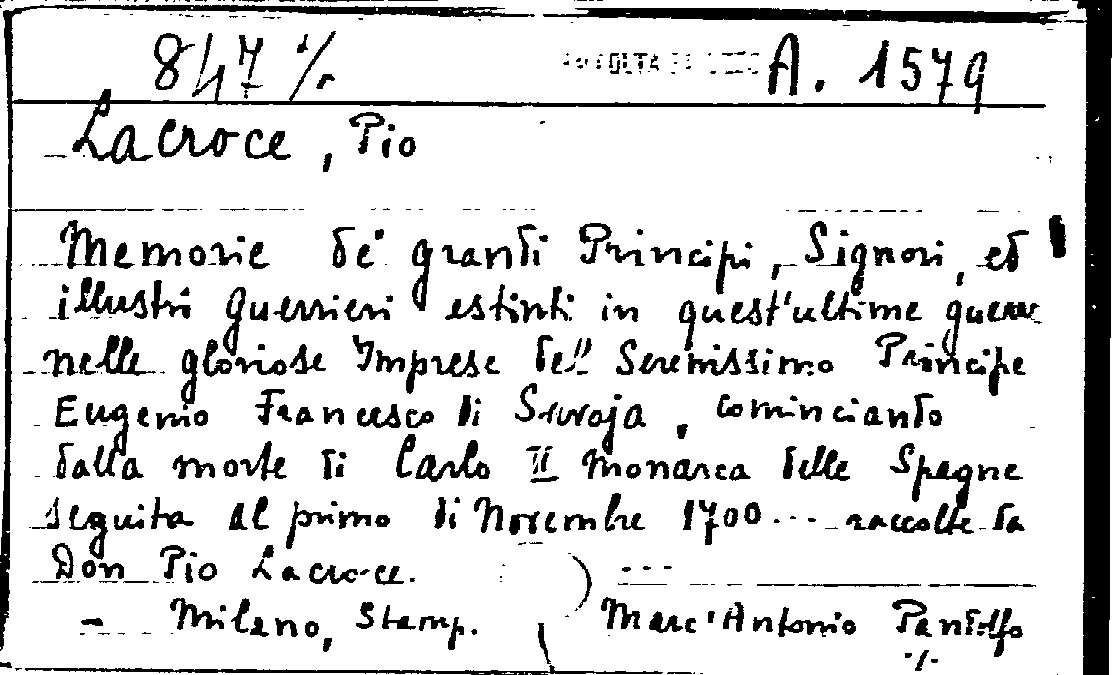 847 %
A. 1579
Lacroce, Pio
Memorie de' grandi Principi, Signori, ed
illustri Guerrieri estinti in quest'ultime guerre
nelle gloriose Imprese dell Serenissimo Principe
Eugenio Francesco di Savoja, cominciando
dalla morte di Carlo II Monarca delle Spagne
seguita al primo di Novembre 1700... raccolte da
Don Pio Lacroce. ...
- Milano, Stamp. Marc'Antonio Pandolfo
./.